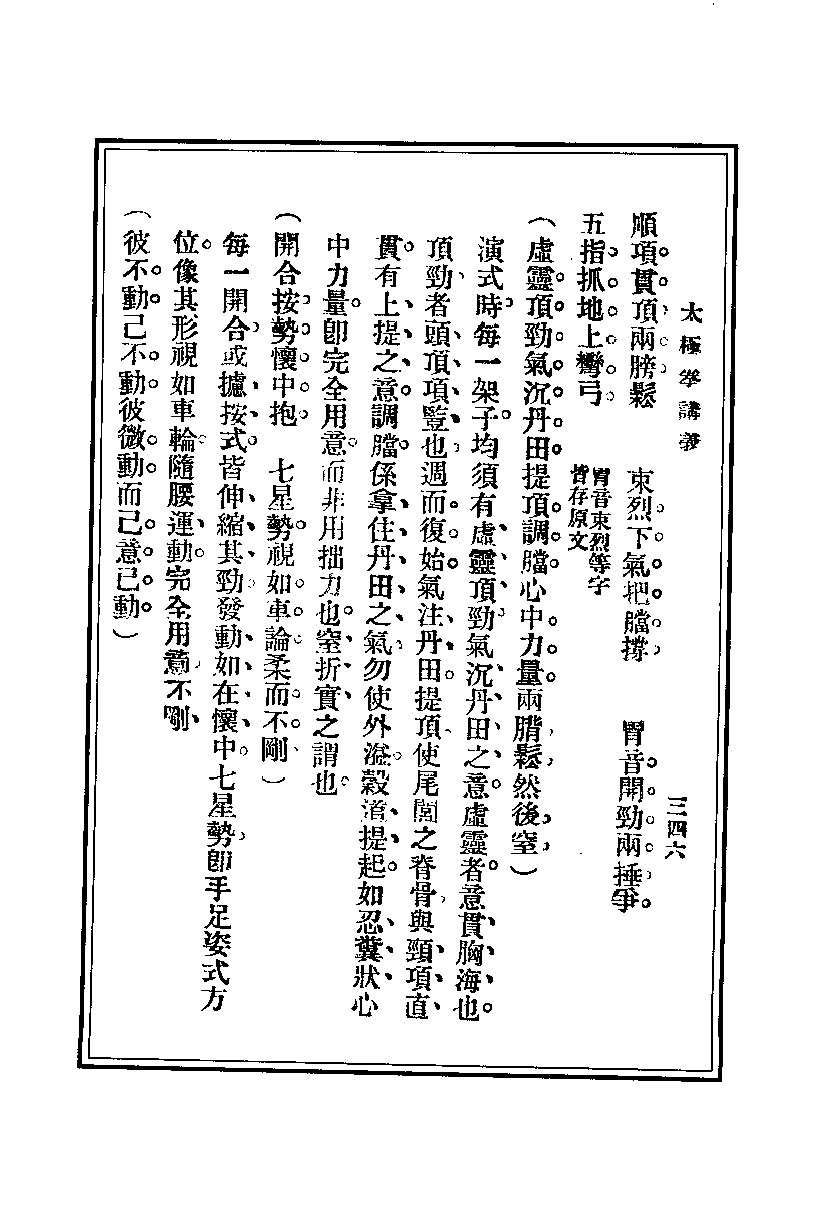 太極拳講義
三四六
順項貫頂兩膀鬆　束烈下氣把膅撐　胃音開勁兩捶爭
五指抓地上彎弓　胃音束烈等字皆存原文
（虛靈頂勁氣沉丹田提頂調膅心中力量兩膊鬆然後窒）
演式時每一架子均須有虛靈頂勁氣沉丹田之意虛靈者意貫胸海也
頂勁者頭頂項豎也週而復始氣注丹田提頂使尾閭之脊骨與頸項直
貫有上提之意調膅係拿住丹田之氣勿使外溢穀道提起如忍糞狀心
中力量卽完全用意而非用拙力也窒折實之謂也
（開合按勢懷中抱　七星勢視如車論柔而不剛）
每一開合或攄按式皆伸縮其勁發動如在懷中七星勢卽手足姿式方
位像其形視如車輪隨腰運動完全用意不剛
（彼不動己不動彼微動而己意已動）